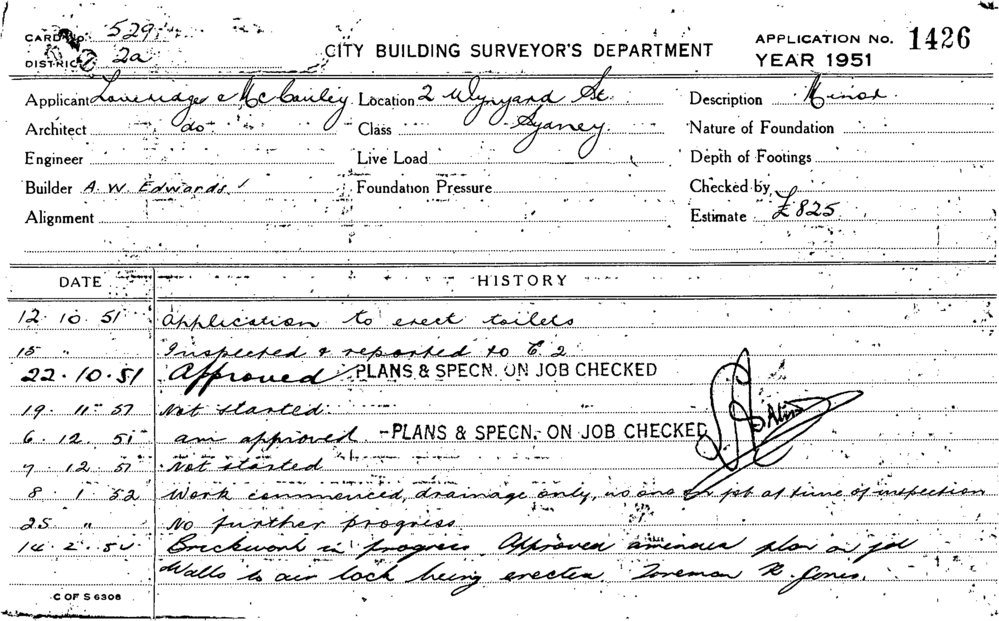 CARD No. 529
DISTRICT 2a
CITY BUILDING SURVEYOR'S DEPARTMENT
APPLICATION No. 1426
YEAR 1951
Applicant Loveridge & McCauley Location 2 Wynyard St. Description Minor
Architect do Class Sydney. Nature of Foundation
Engineer Live Load Depth of Footings
Builder A. W. Edwards Foundation Pressure Checked by
Alignment Estimate £825
DATE HISTORY
12. 10. 51 Application to erect toilets
15 " Inspected & reported to C 2
22. 10. 51 Approved PLANS & SPECN. ON JOB CHECKED
19. 11. 51 Not started
6. 12. 51 am approved PLANS & SPECN. ON JOB CHECKED
7 12 51 Not started
8. 1. 52 Work commenced, drainage only, no one on at time of inspection
25 " No further progress
14. 2. 52 Brickwork in progress Approved amended plan on job
Walls to air lock being erected. Foreman Jones.
C OF S 6308